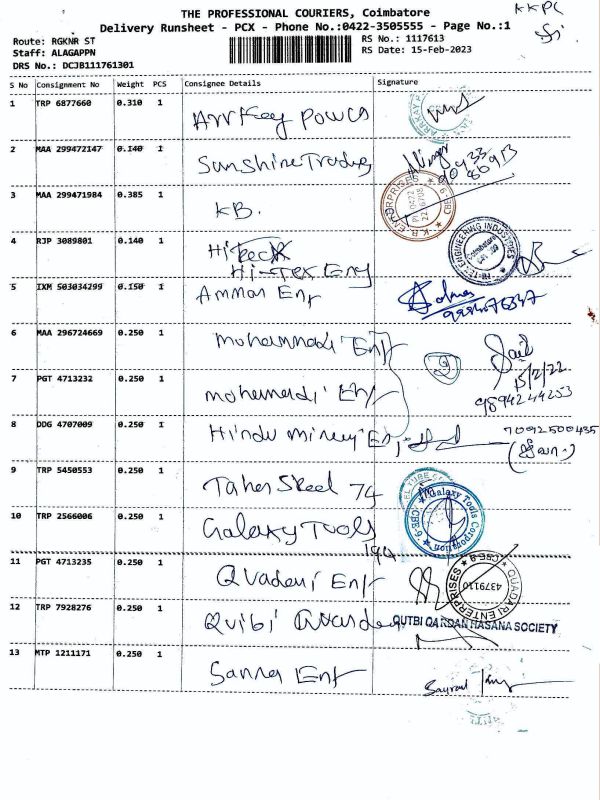 THE PROFESSIONAL COURIERS, Coimbatore
KKPC
Delivery Runsheet - PCX - Phone No.:0422-3505555 - Page No.:1
Route: RGKNR ST
RS No.: 1117613
Staff: ALAGAPPN
RS Date: 15-Feb-2023
DRS No.: DCJB111761301
S No Consignment No Weight PCS Consignee Details Signature
1 TRP 6877660 0.310 1
2 MAA 299472147 0.140 1 Sunshine Trading
3 MAA 299471984 0.385 1 KB.
K.B. ENTERPRISES
4 RJP 3089801 0.140 1 Hi-Tex Eng
HI-TEC ENGINEERING INDUSTRIES
Coimbatore
5 IXM 503034299 0.150 1 Amman Ent
6 MAA 296724669 0.250 1 Mohammadi Ent
15/2/22
7 PGT 4713232 0.250 1 Mohamadi Ent
9894244253
8 DDG 4707009 0.250 1 Hindu
7092500435
9 TRP 5450553 0.250 1 Taher Steel 74
10 TRP 2566006 0.250 1 Galaxy Tools
194
Galaxy Tools Corporation
11 PGT 4713235 0.250 1 Quadari Ent
QUADARI ENTERPRISES CBE-9
4379110
12 TRP 7928276 0.250 1 Quibi
QUTBI QARDAN HASANA SOCIETY
13 MTP 1211171 0.250 1 Sanna Ent